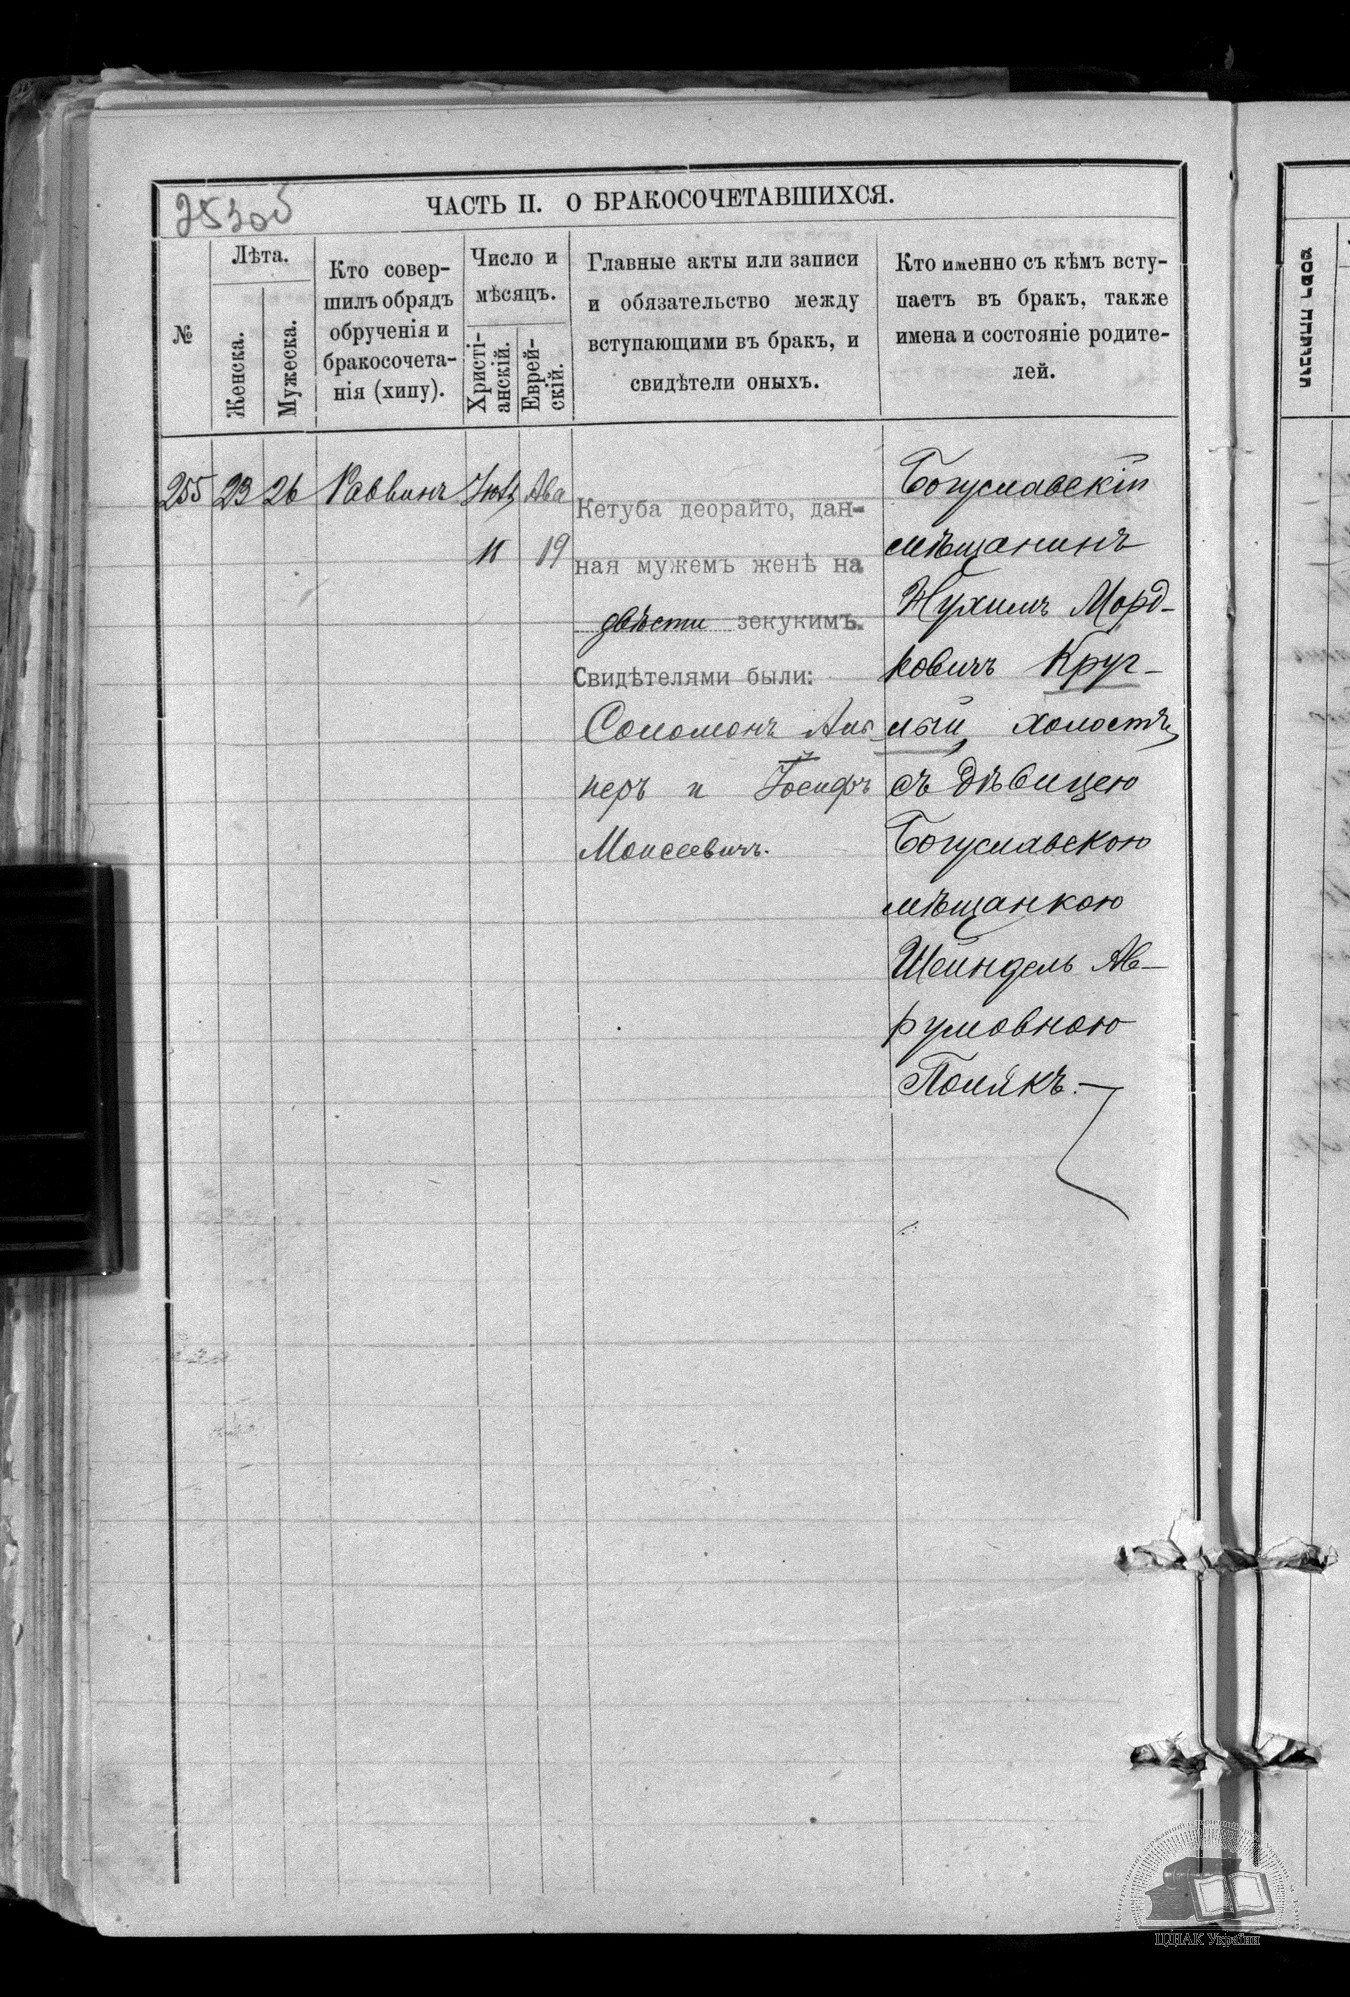 ЧАСТЬ II. О БРАКОСОЧЕТАВШИХСЯ.
№
Лѣта.
Женска.
Мужеска.
Кто совер-
шилъ обрядъ
обрученія и
бракосочета-
нія (хипу).
Число и
мѣсяцъ.
Христі-
анскій.
Еврей-
скій.
Главные акты или записи
и обязательство между
вступающими въ бракъ, и
свидѣтели оныхъ.
Кто именно съ кѣмъ всту-
паетъ въ бракъ, также
имена и состояніе родите-
лей.
255
23
26
Раввинъ
11
Ава
19
Кетуба деорайто, дан-
ная мужемъ женѣ на
двѣсти зекукимъ.
Свидѣтелями были:
Соломонъ Аль
перъ и Іосифъ
Моисеевичъ.
Богуславскій
мѣщанинъ
Нухимъ Морд-
ковичъ Круг-
лый, холостъ,
съ дѣвицею
Богуславскою
мѣщанкою
Шейндель Ав-
румовною
Полякъ.
ЦДІАК України